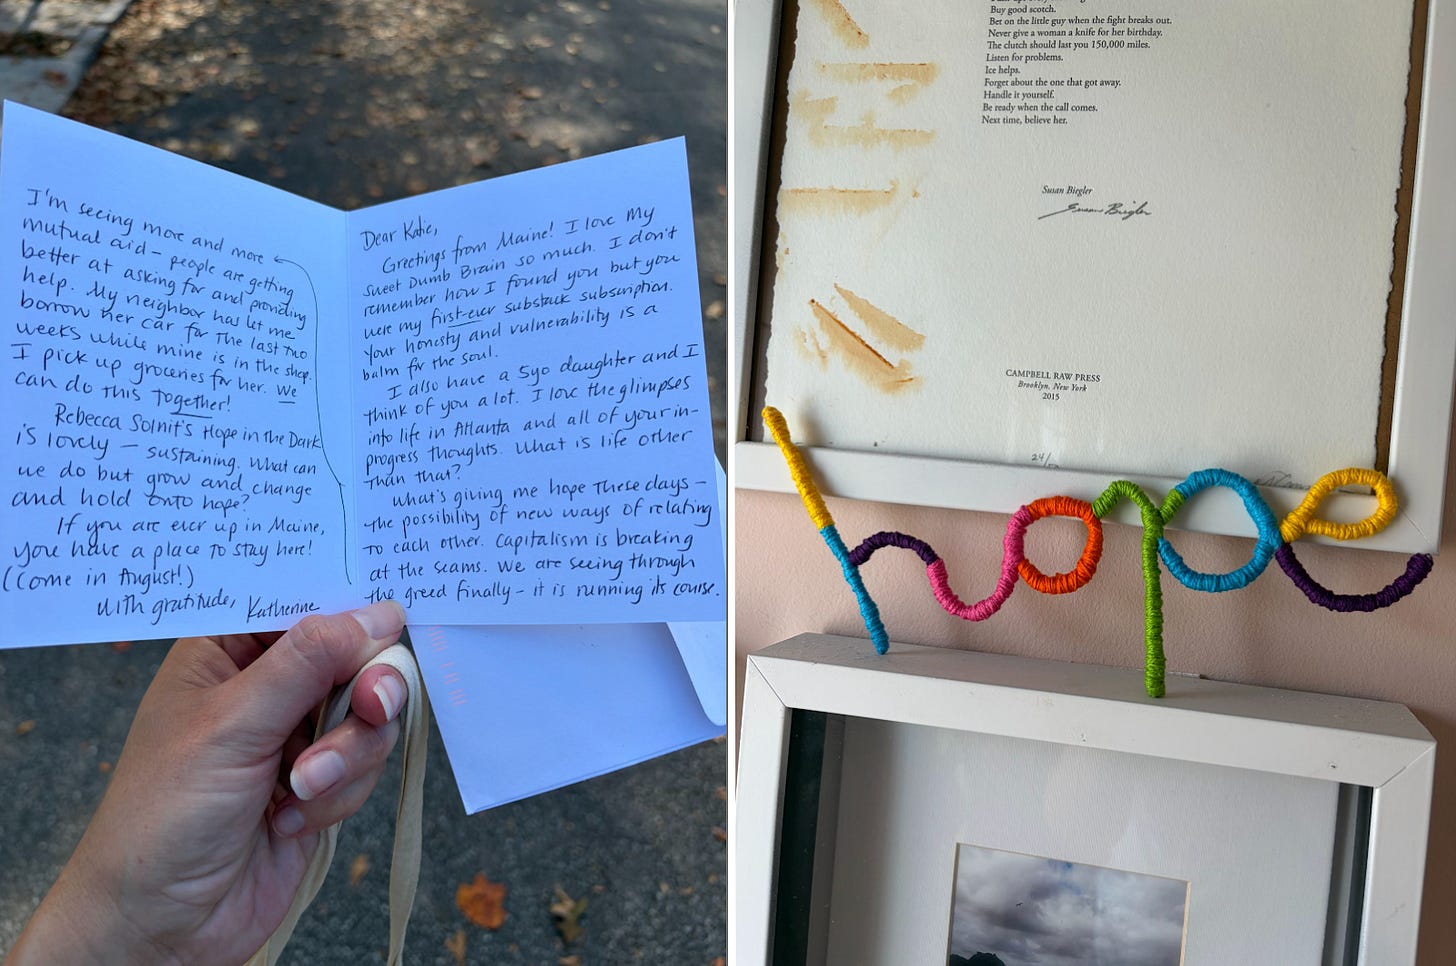 Dear Katie,
Greetings from Maine! I love My
Sweet Dumb Brain so much. I don't
remember how I found you but you
were my first-ever substack subscription.
Your honesty and vulnerability is a
balm for the soul.
I also have a 5yo daughter and I
think of you a lot. I love the glimpses
into life in Atlanta and all of your in-
progress thoughts. What is life other
than that?
What's giving me hope these days –
the possibility of new ways of relating
to each other. Capitalism is breaking
at the seams. We are seeing through
the greed finally – it is running its course.
I'm seeing more and more
mutual aid – people are getting
better at asking for and providing
help. My neighbor has let me
borrow her car for the last two
weeks while mine is in the shop.
I pick up groceries for her. We
can do this together!
Rebecca Solnit's Hope in the Dark
is lovely – sustaining. What can
we do but grow and change
and hold onto hope?
If you are ever up in Maine,
you have a place to stay here!
(Come in August!)
With gratitude, Katherine
Buy good scotch.
Bet on the little guy when the fight breaks out.
Never give a woman a knife for her birthday.
The clutch should last you 150,000 miles.
Listen for problems.
Ice helps.
Forget about the one that got away.
Handle it yourself.
Be ready when the call comes.
Next time, believe her.
Susan Biegler
Susan Biegler
CAMPBELL RAW PRESS
Brooklyn, New York
2015
24/
hope